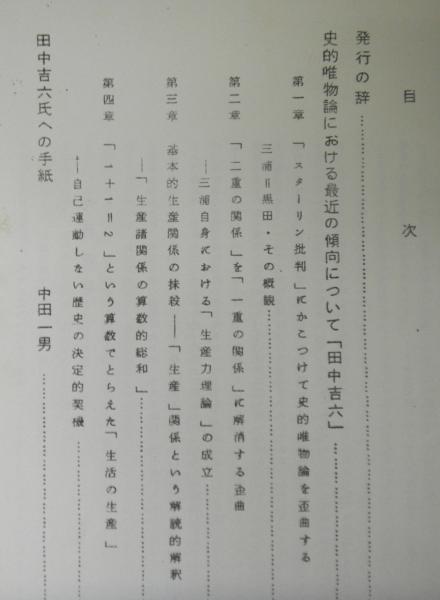 目次
発行の辞……………………
史的唯物論における最近の傾向について「田中吉六」……
第一章 「スターリン批判」にかこつけて史的唯物論を歪曲する
三浦=黒田・その概観……………………
第二章 「二重の関係」を「一重の関係」に解消する歪曲
——三浦自身における「生産力理論」の成立……………
第三章 基本的生産関係の抹殺——「生産」関係という解説的解釈
——「生産諸関係の算数的総和」……………………
第四章 「1+1=2」という算数でとらえた「生活の生産」
——自己運動しない歴史の決定的契機……………………
田中吉六氏への手紙 中田一男……………………